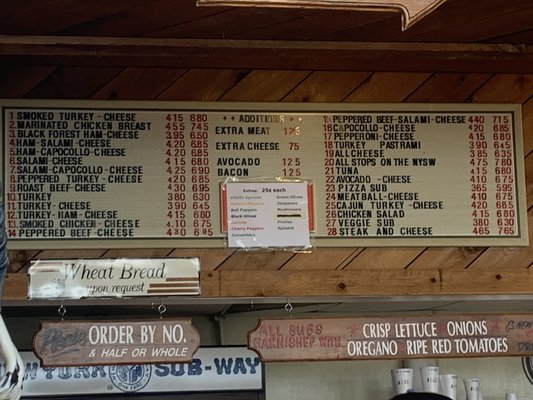 1 SMOKED TURKEY-CHEESE 415 680
2 MARINATED CHICKEN BREAST 455 745
3 BLACK FOREST HAM-CHEESE 395 650
4 HAM-SALAMI-CHEESE 420 685
5 HAM-CAPOCOLLO-CHEESE 420 685
6 SALAMI-CHEESE 415 680
7 SALAMI-CAPOCOLLO-CHEESE 425 690
8 PEPPERED TURKEY-CHEESE 420 685
9 ROAST BEEF-CHEESE 430 695
10 TURKEY 380 630
11 TURKEY-CHEESE 390 645
12 TURKEY-HAM-CHEESE 415 680
13 SMOKED CHICKEN-CHEESE
14 PEPPERED BEEF-CHEESE
ADDITIONS
EXTRA MEAT 125
EXTRA CHEESE 75
AVOCADO 125
BACON 125
Extras: 25¢ each
Bell Peppers
Black Olives
Onions
Cherry Peppers
Cucumbers
Green Olives
Jalapenos
Mushrooms
Pickles
Spinach
PEPPERED BEEF-SALAMI-CHEESE 440 715
16 CAPOCOLLO-CHEESE 420 685
17 PEPPERONI-CHEESE 420 685
18 TURKEY PASTRAMI 390 645
19 ALLCHEESE 385 635
20 ALL STOPS ON THE NYSW 475 780
21 TUNA 415 680
22 AVOCADO-CHEESE 410 675
23 PIZZA SUB 365 595
24 MEATBALL-CHEESE 410 675
25 CAJUN TURKEY-CHEESE 420 685
26 CHICKEN SALAD 415 680
27 VEGGIE SUB 380 630
28 STEAK AND CHEESE 415 765
Wheat Bread
upon request
Please ORDER BY NO.
& HALF OR WHOLE
ALL SUBS
GARNISHED W/
CRISP LETTUCE ONIONS
OREGANO RIPE RED TOMATOES
NEW YORK SUB-WAY